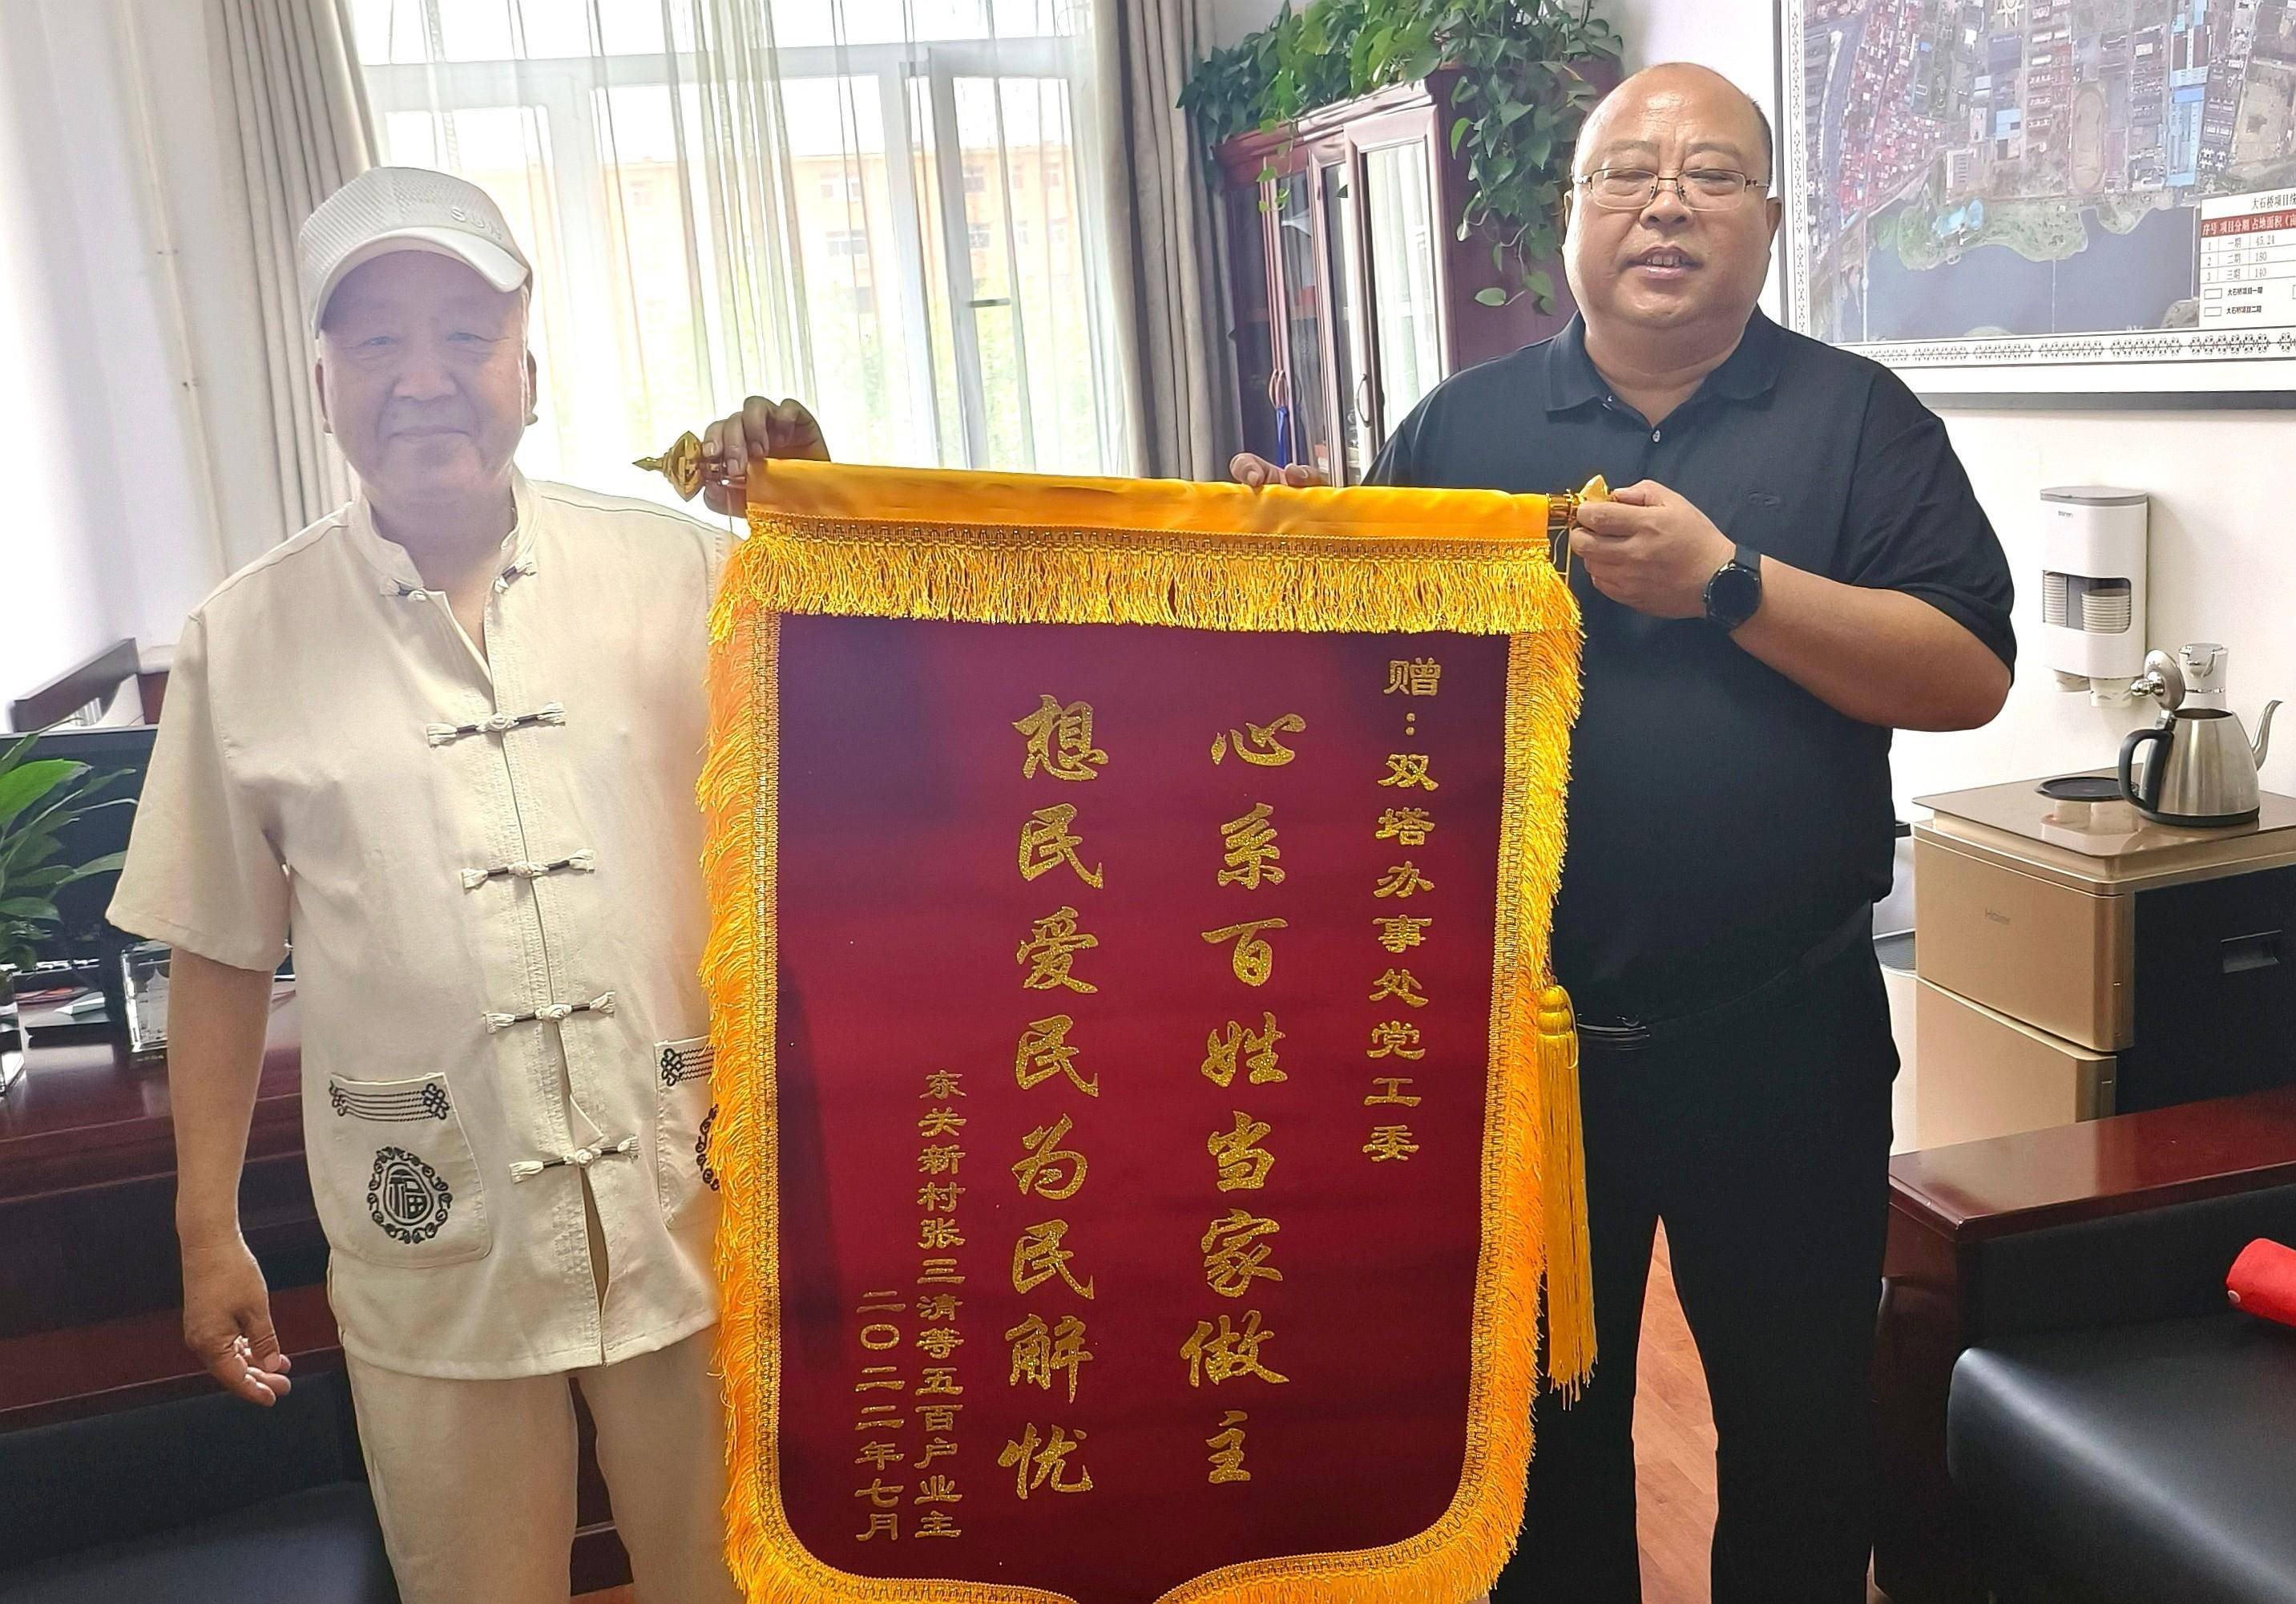 赠：双塔办事处党工委
心系百姓当家做主
想民爱民为民解忧
东关新村张三清等五百户业主
二〇二二年七月
SUN
福
Haier
序号 项目分期 占地面积
1 一期 45.24
2 二期 180
3 三期 140
大石桥项目一期
大石桥项目二期